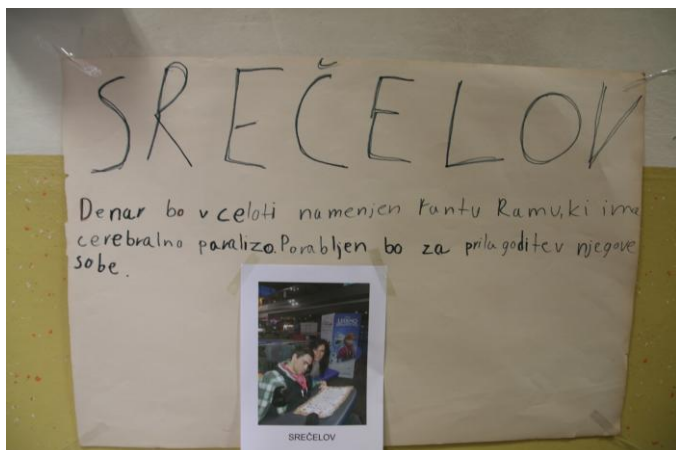 SREČELOV
Denar bo v celoti namenjen Fantu Ramu, ki ima
cerebralno paralizo. Porabljen bo za prilagoditev njegove
sobe.
SREČELOV